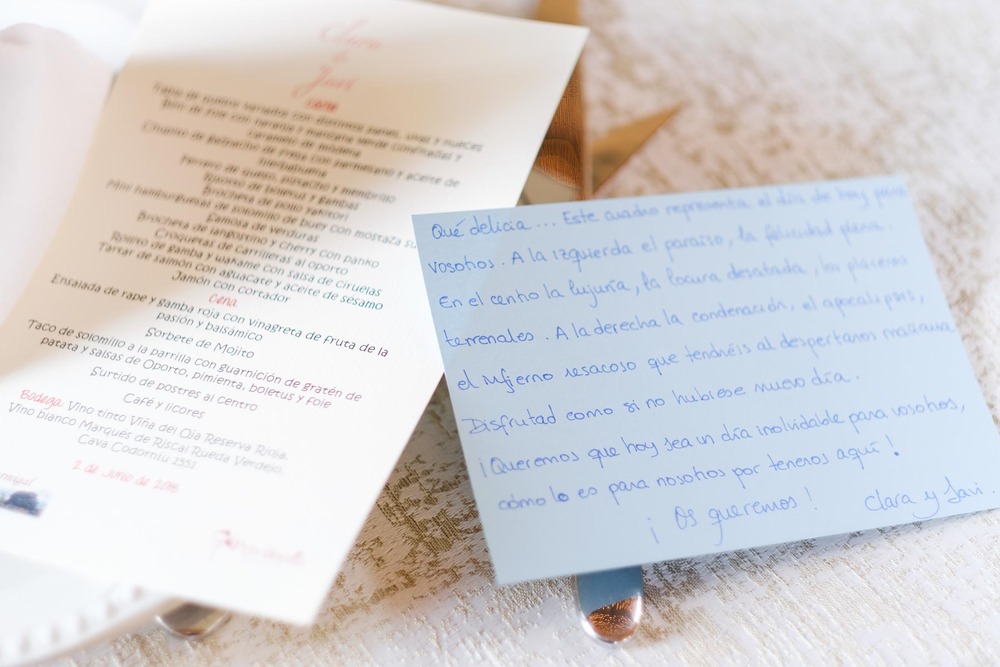 Clara
&
Javi
Carta
Tabla de quesos variados con distintos panes, uvas y nueces
Bolo de foie con naranja y manzana verde confitadas y
caramelo de módena
Chupito de gazpacho de fresa con parmesano y aceite de
hierbabuena
Ferrero de queso, pistacho y membrillo
Risotto de boletus y gambas
Brocheta de pollo yakitori
Mini hamburguesas de solomillo de buey con mostaza su
Samosa de verduras
Brocheta de langostino y cherry con panko
Croquetas de carrilleras al oporto
Rollito de gamba y wakame con salsa de ciruelas
Tartar de salmón con aguacate y aceite de sésamo
Jamón con cortador
Cena
Ensalada de rape y gamba roja con vinagreta de fruta de la
pasión y balsámico
Sorbete de Mojito
Taco de solomillo a la parrilla con guarnición de gratén de
patata y salsas de Oporto, pimienta, boletus y foie
Surtido de postres al centro
Café y licores
Bodega Vino tinto Viña del Oja Reserva Rioja.
Vino blanco Marqués de Riscal Rueda Verdejo.
Cava Codorníu 1551
2 de Junio de 2018
Qué delicia... Este cuadro representa el día de hoy para
vosotros. A la izquierda el paraíso, la felicidad plena.
En el centro la lujuria, la locura desatada, los placeres
terrenales. A la derecha la condenación, el apocalipsis,
el infierno resacoso que tendréis al despertaros mañana.
Disfrutad como si no hubiese nuevo día.
¡Queremos que hoy sea un día inolvidable para vosotros,
cómo lo es para nosotros por teneros aquí!
¡Os queremos! Clara y Javi.